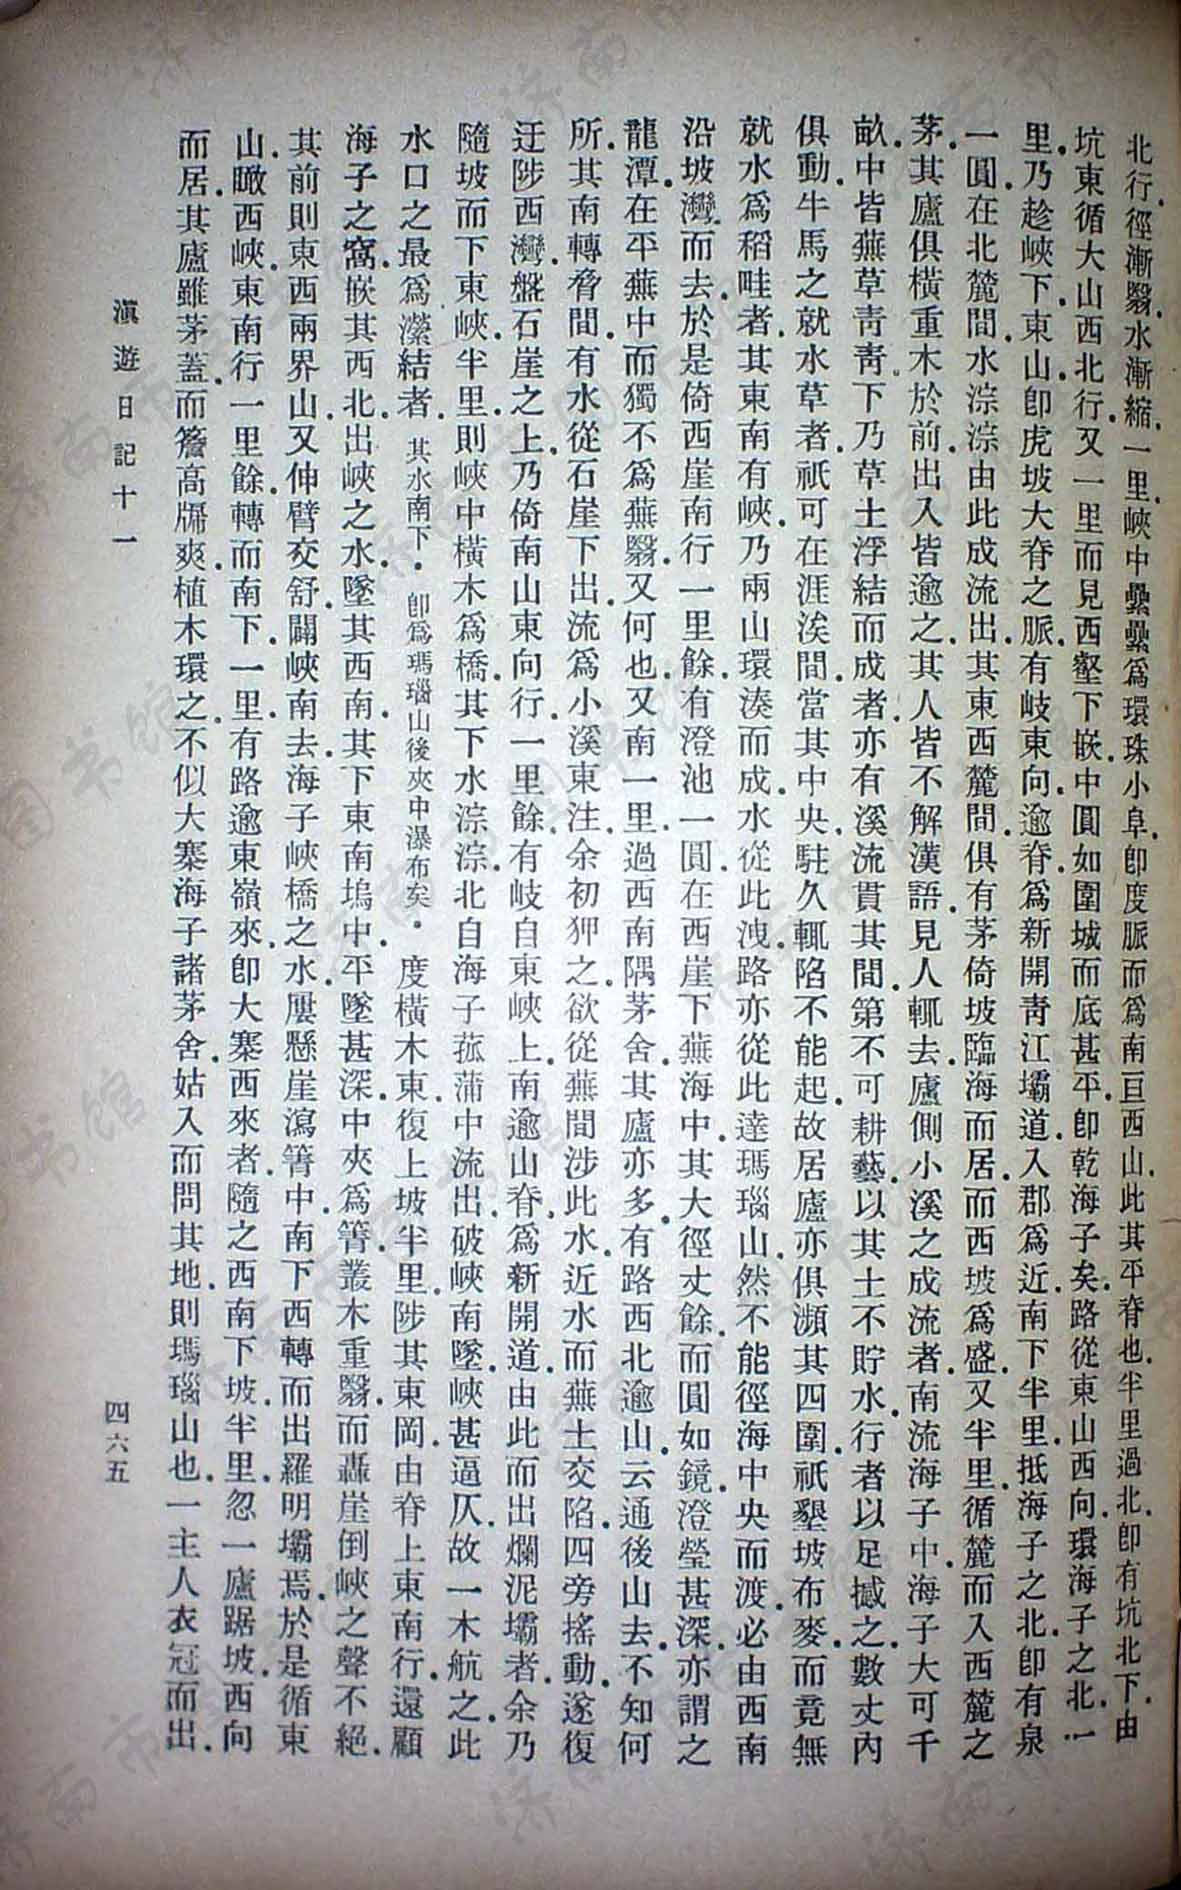 北行.徑漸翳.水漸縮.一里.峽中纍纍爲環珠小阜.卽度脈而爲南亘西山.此其平脊也.半里過北.卽有坑北下.由
坑東循大山西北行.又一里而見西壑下嵌.中圓如圍城.而底甚平.卽乾海子矣.路從東山西向.環海子之北.一
里.乃趁峽下.東山.卽虎坡大脊之脈.有岐東向.逾脊.爲新開靑江壩道.入郡爲近.南下半里.抵海子之北.卽有泉
一圓.在北麓間.水淙淙由此成流出.其東西麓間.俱有茅倚坡臨海而居.而西坡爲盛.又半里.循麓而入西麓之
茅.其廬俱橫重木於前.出入皆逾之.其人皆不解漢語.見人輒去.廬側小溪之成流者.南流海子中.海子大可千
畝.中皆蕪草靑靑.下乃草土浮結而成者.亦有溪流貫其間.第不可耕藝.以其土不貯水.行者以足撼之.數丈內
俱動.牛馬之就水草者.祇可在涯涘間.當其中央.駐久輒陷不能起.故居廬亦俱瀕其四圍.祇墾坡布麥.而竟無
就水爲稻畦者.其東南有峽.乃兩山環湊而成.水從此洩.路亦從此達瑪瑙山.然不能徑海中央而渡.必由西南
沿坡灣而去.於是倚西崖南行一里餘.有澄池一圓.在西崖下蕪海中.其大徑丈餘.而圓如鏡.澄瑩甚深.亦謂之
龍潭.在平蕪中而獨不爲蕪翳.又何也.又南一里.過西南隅茅舍.其廬亦多.有路西北逾山.云通後山去.不知何
所.其南轉脊間.有水從石崖下出.流爲小溪東注.余初狎之.欲從蕪間涉此水.近水而蕪土交陷.四旁搖動.遂復
迂陟西灣.盤石崖之上.乃倚南山東向行.一里餘.有岐自東峽上.南逾山脊.爲新開道.由此而出爛泥壩者.余乃
隨坡而下東峽.半里.則峽中橫木爲橋.其下水淙淙.北自海子菰蒲中流出.破峽南墜.峽甚逼仄.故一木航之.此
水口之最爲瀠結者.其水南下.卽爲瑪瑙山後夾中瀑布矣.度橫木東.復上坡半里.陟其東岡.由脊上東南行.還顧
海子之窩.嵌其西北.出峽之水.墜其西南.其下東南塢中.平墜甚深.中夾爲箐.叢木重翳.而轟崖倒峽之聲不絕.
其前則東西兩界山.又伸臂交舒.闢峽南去.海子峽橋之水.屢懸崖瀉箐中.南下西轉而出羅明壩焉.於是循東
山.瞰西峽.東南行一里餘.轉而南下.一里.有路逾東嶺來.卽大寨西來者.隨之西南下坡.半里.忽一廬踞坡.西向
而居.其廬雖茅蓋.而簷高牖爽.植木環之.不似大寨海子諸茅舍.姑入而問其地.則瑪瑙山也.一主人衣冠而出.
滇遊日記十一
四六五